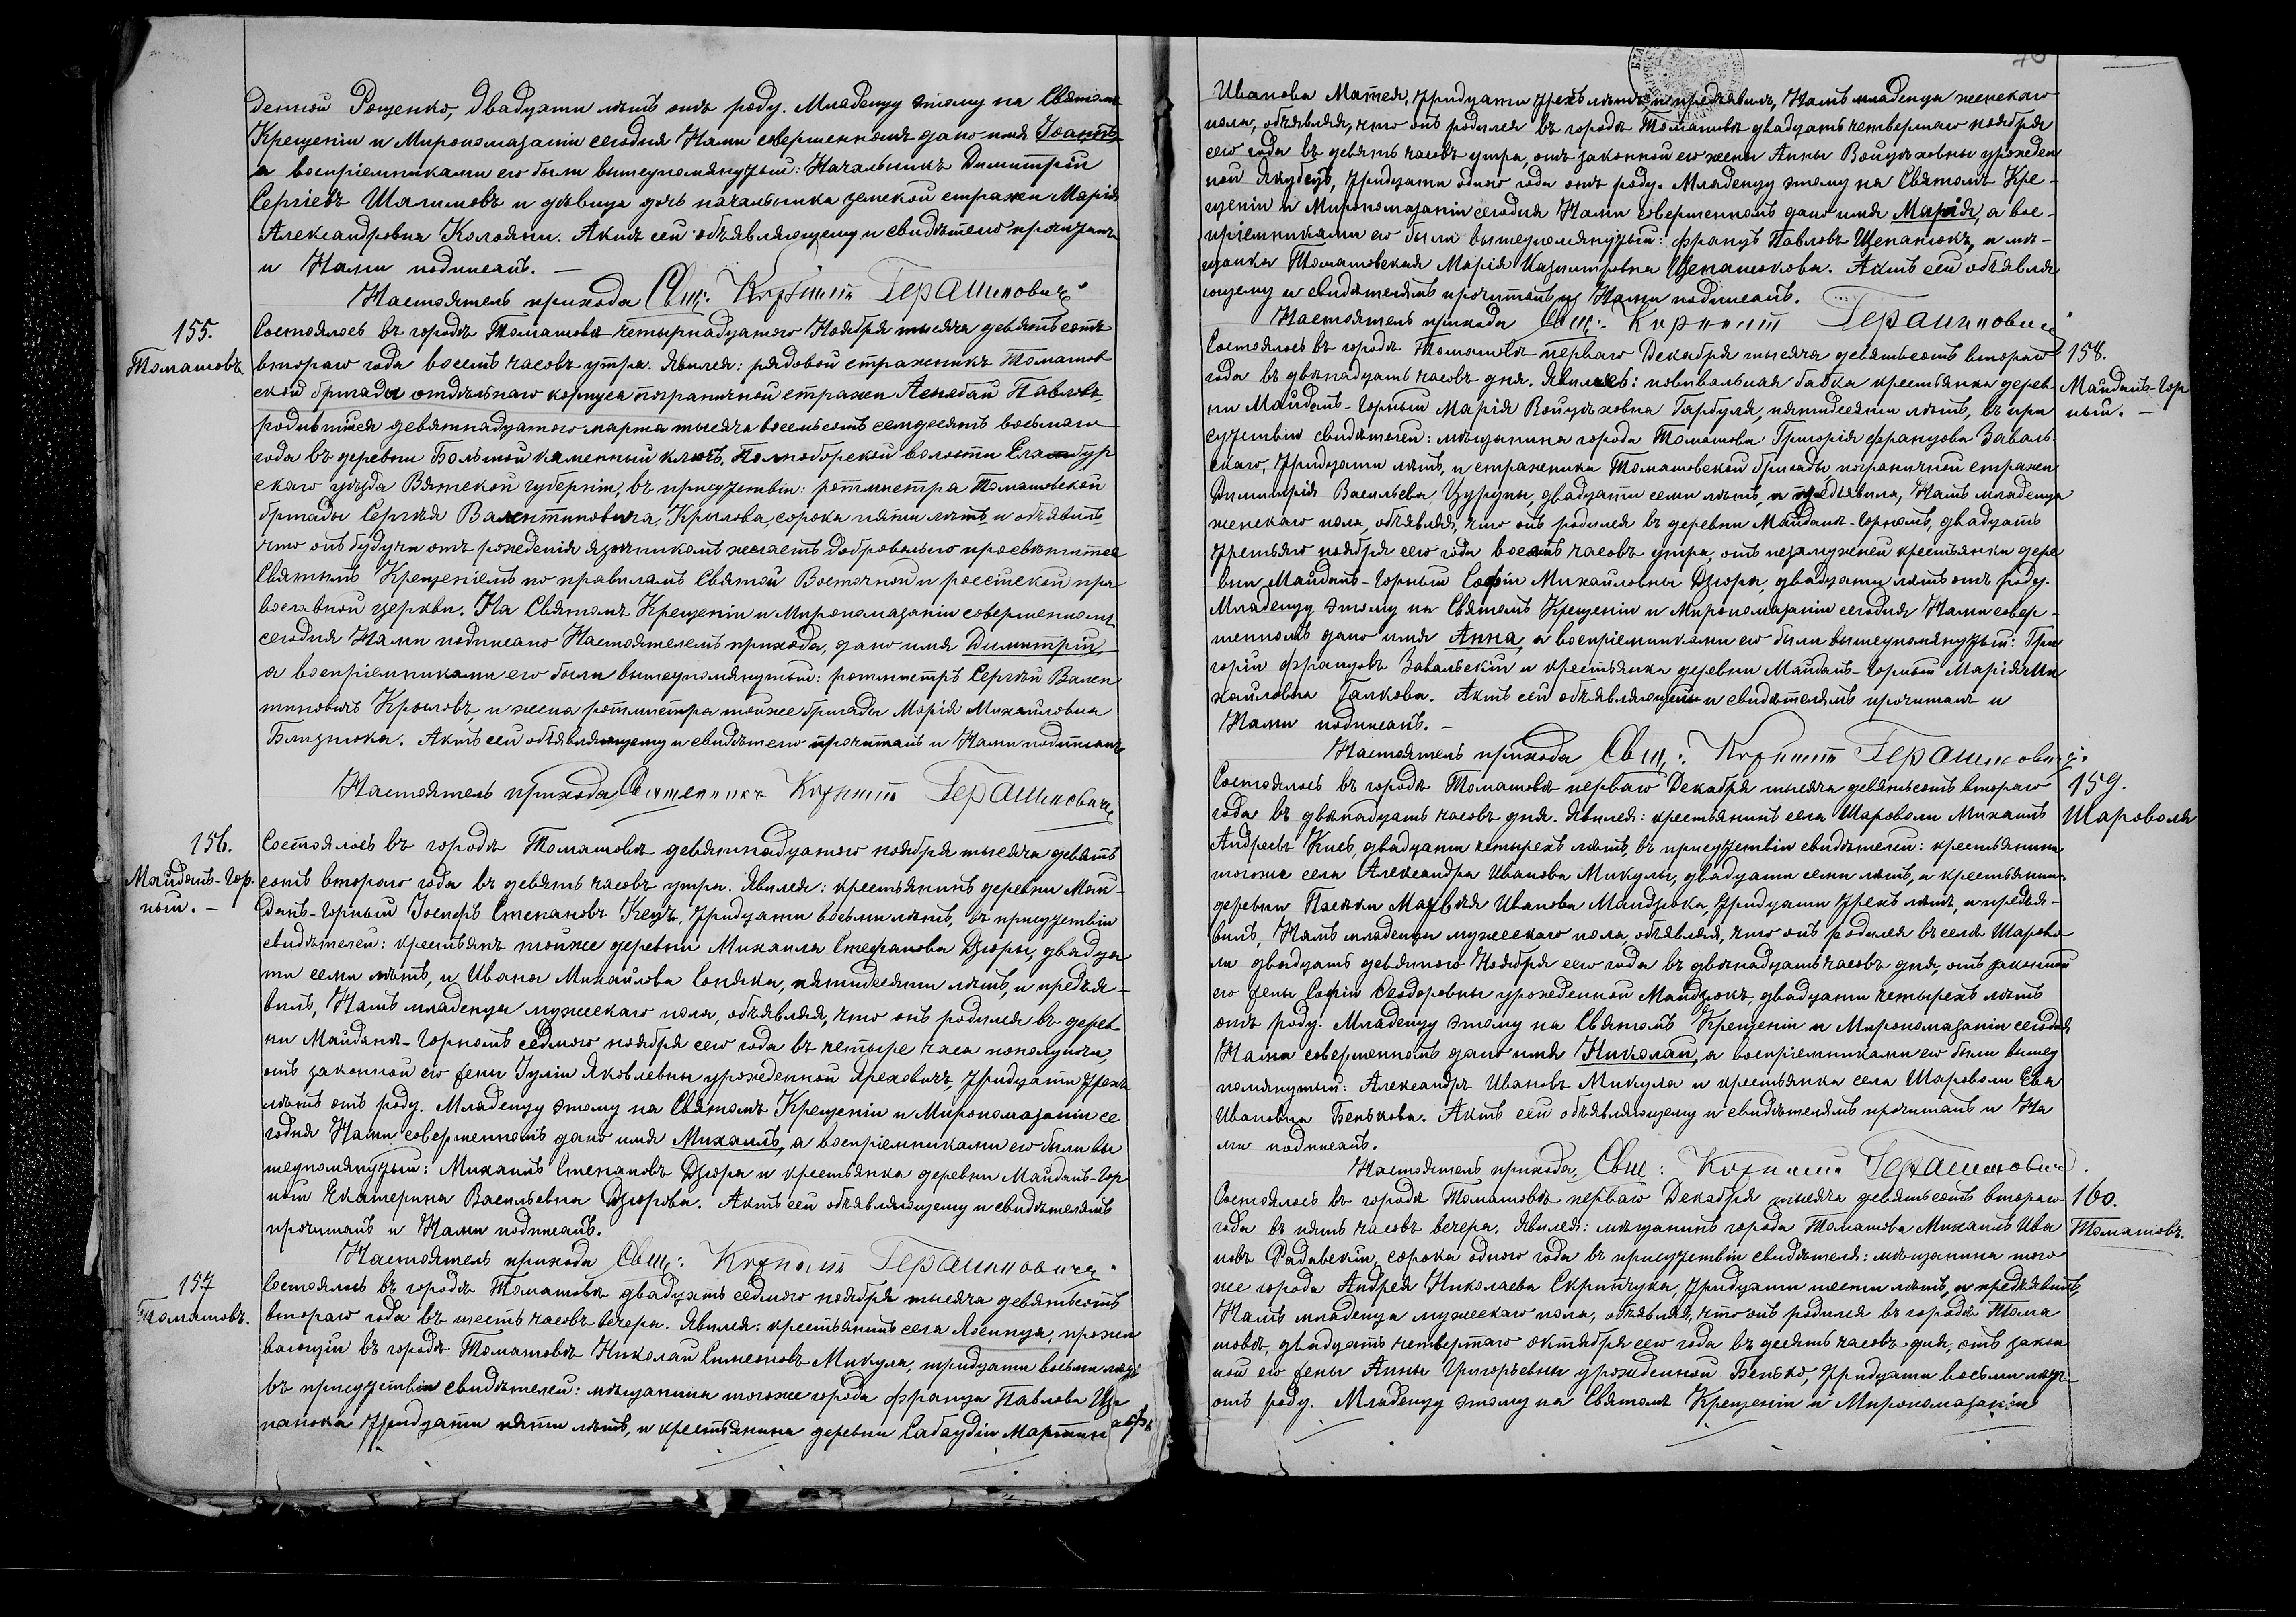 денной Рощенко, двадцати лѣтъ отъ роду. Младенцу этому на Святомъ
Крещеніи и Миропомазаніи сегодня Нами совершенномъ дано имя Іоаннъ,
а воспріемниками его были вышеупомянутый: Начальникъ Димитрій
Сергіевъ Шалимовъ и дѣвица дочь начальника земской стражи Марія
Александровна Колоянни. Актъ сей объявляющему и свидѣтелю прочитанъ
и Нами подписанъ. —
Настоятель прихода Свщ: Корнилій Герашиновичъ
155.
Томашовъ.
Состоялось въ городѣ Томашовѣ четырнадцатого Ноября тысяча девятьсотъ
второго года восемь часовъ утра. Явился: рядовой стражникъ Томашов
ской бригады отдѣльнаго корпуса пограничной стражи Асылбай Павловъ,
родившійся девятнадцатого марта тысяча восемьсотъ семдесятъ восьмаго
года въ деревни Большой каменный ключъ, волости Елабуж
скаго уѣзда Вятской губерніи, въ присутствіи: ротмистра Томашовской
бригады Сергѣя Валентиновича Крылова, сорока пяти лѣтъ и объявилъ
что онъ будучи отъ рожденія язычникомъ желаетъ добровольно просвѣтится
Святымъ Крещеніемъ по правиламъ Святой Восточной и россійской пра
вославной церкви. На Святомъ Крещеніи и Миропомазаніи совершенномъ
сегодня Нами подписано Настоятелемъ прихода, дано имя Димитрій,
а воспріемниками его были вышеупомянутый: ротмистръ Сергѣй Вален
тиновичъ Крыловъ, и жена ротмистра тойже бригады Марія Михайловна
Близнюка. Актъ сей объявляющему и свидѣтелю прочитанъ и Нами подписанъ
Настоятель прихода Священникъ Корнилій Герашиновичъ
156.
Майданъ-Гор.
ный. —
Состоялось въ городѣ Томашовѣ девятнадцатого ноября тысяча девять
сотъ второго года въ девять часовъ утра. Явился: крестьянинъ деревни Май-
данъ-Горный Іосифъ Степановъ Кецъ, тридцати восьми лѣтъ, въ присутствіи
свидѣтелей: крестьянъ тойже деревни Михаила Стефанова Дзюры, двадца
ти семи лѣтъ, и Ивана Михайлова Сопяка, пятидесяти лѣтъ, и предъя-
вилъ, Намъ младенца мужескаго пола, объявляя, что онъ родился въ дерев
ни Майданѣ-Горномъ седмого ноября сего года въ четыре часа пополуночи,
отъ законной его жены Іуліи Яковлевны урожденной Ярековичъ, тридцати трехъ
лѣтъ отъ роду. Младенцу этому на Святомъ Крещеніи и Миропомазаніи се
годня Нами совершенномъ дано имя Михаилъ, а воспріемниками его были вы
шеупомянутый: Михаилъ Степановъ Дзюра и крестьянка деревни Майданъ-Гор
ный Екатерина Васильевна Дзюрова. Актъ сей объявляющему и свидѣтелямъ
прочитанъ и Нами подписанъ.
Настоятель прихода Свщ: Корнилій Герашиновичъ.
157
Томашовъ.
Состоялось въ городѣ Томашовѣ двадцать седмого ноября тысяча девятьсотъ
второго года въ шесть часовъ вечера. Явился: крестьянинъ села Лосинца, прожи
вающій въ городѣ Томашовѣ Николай Симеоновъ Микула, тридцати восьми лѣтъ
въ присутствіи свидѣтелей: мѣщанина тогоже города Франца Павлова Ще
панюка тридцати пяти лѣтъ, и крестьянина деревни Сабаудіи Мартин
Иванова Матея, тридцати трехъ лѣтъ, и предъявилъ, Намъ младенца женскаго
пола, объявляя, что онъ родился въ городѣ Томашовѣ двадцать четвертаго ноября
сего года въ девять часовъ утра, отъ законной его жены Анны Войцѣховны урожден
ной Якубецъ, тридцати одного года отъ роду. Младенцу этому на Святомъ Кре-
щеніи и Миропомазаніи сегодня Нами совершенномъ дано имя Марія, а вос-
пріемниками его были вышеупомянутый: Францъ Павловъ Щепанюкъ, и мѣ-
щанка Томашовская Марія Казимировна Щепанюкова. Актъ сей объявля
ющему и свидѣтелямъ прочитанъ и Нами подписанъ.
Настоятель прихода Свщ: Корнилій Герашиновичъ
158.
Майданъ-Гор
ный. —
Состоялось въ городѣ Томашовѣ перваго Декабря тысяча девятьсотъ второго
года въ двѣнадцать часовъ дня. Явилась: повивальная бабка крестьянка дерев
ни Майданъ-Горный Марія Войцѣховна Гарбуля, пятидесяти лѣтъ, въ при
сутствіи свидѣтелей: мѣщанина города Томашова Григорія Францова Заваль
скаго, тридцати лѣтъ, и стражника Томашовской бригады пограничной стражи
Димитрія Васильева Цуруны, двадцати семи лѣтъ, и предъявила, Намъ младенца
женскаго пола, объявляя, что онъ родился въ деревни Майданѣ-Горномъ, двадцать
третьяго ноября сего года восемь часовъ утра, отъ незамужней крестьянки дере
вни Майданъ-Горный Софіи Михайловны Дзюры, двадцати лѣтъ отъ роду.
Младенцу этому на Святомъ Крещеніи и Миропомазаніи сегодня Нами совер-
шенномъ дано имя Анна, а воспріемниками его были вышеупомянутый: Гри
горій Францовъ Завальскій и крестьянка деревни Майданъ-Горный Марія Ми
хайловна Галкова. Актъ сей объявляющей и свидѣтелямъ прочитанъ и
Нами подписанъ. —
Настоятель прихода Свщ: Корнилій Герашиновичъ.
159.
Шароволя
Состоялось въ городѣ Томашовѣ перваго Декабря тысяча девятьсотъ второго
года въ двѣнадцать часовъ дня. Явился: крестьянинъ села Шароволи Михаилъ
Андреевъ Кисъ, двадцати четырехъ лѣтъ, въ присутствіи свидѣтелей: крестьянина
тогоже села Александра Иванова Микулы, двадцати семи лѣтъ, и крестьянина
деревни Пасеки Матвѣя Иванова Мандзюка, тридцати трехъ лѣтъ, и предъя-
вилъ, Намъ младенца мужескаго пола, объявляя, что онъ родился въ селѣ Шарово
ли двадцать девятого Ноября сего года въ двѣнадцать часовъ дня, отъ законной
его жены Софіи Ѳеодоровны урожденной Мандзюкъ, двадцати четырехъ лѣтъ
отъ роду. Младенцу этому на Святомъ Крещеніи и Миропомазаніи сегодня
Нами совершенномъ дано имя Николай, а воспріемниками его были вышеу
помянутый: Александръ Ивановъ Микула и крестьянка села Шароволи Ева
Ивановна Бенькова. Актъ сей объявляющему и свидѣтелямъ прочитанъ и На
ми подписанъ.
Настоятель прихода, Свщ: Корнилій Герашиновичъ.
160.
Томашовъ.
Состоялось въ городѣ Томашовѣ перваго Декабря тысяча девятьсотъ второго
года въ пять часовъ вечера. Явился: мѣщанинъ города Томашова Михаилъ Ива
новъ Радавскій, сорока одного года въ присутствіи свидѣтеля: мѣщанина того
же города Андрея Николаева Скрипчука, тридцати шести лѣтъ, и предъявилъ,
Намъ младенца мужескаго пола, объявляя, что онъ родился въ городѣ Тома
шовѣ, двадцать четвертаго октября сего года въ десять часовъ дня, отъ закон
ной его жены Анны Григорьевны урожденной Бенько, тридцати восьми лѣтъ
отъ роду. Младенцу этому на Святомъ Крещеніи и Миропомазаніи